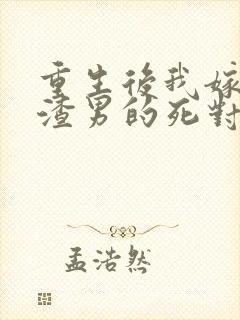 重生後我嫁
渣男的死對
孟浩然